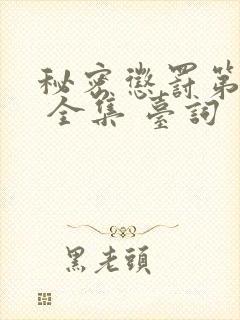 秘密懲罰第
全集 臺詞
黑老頭